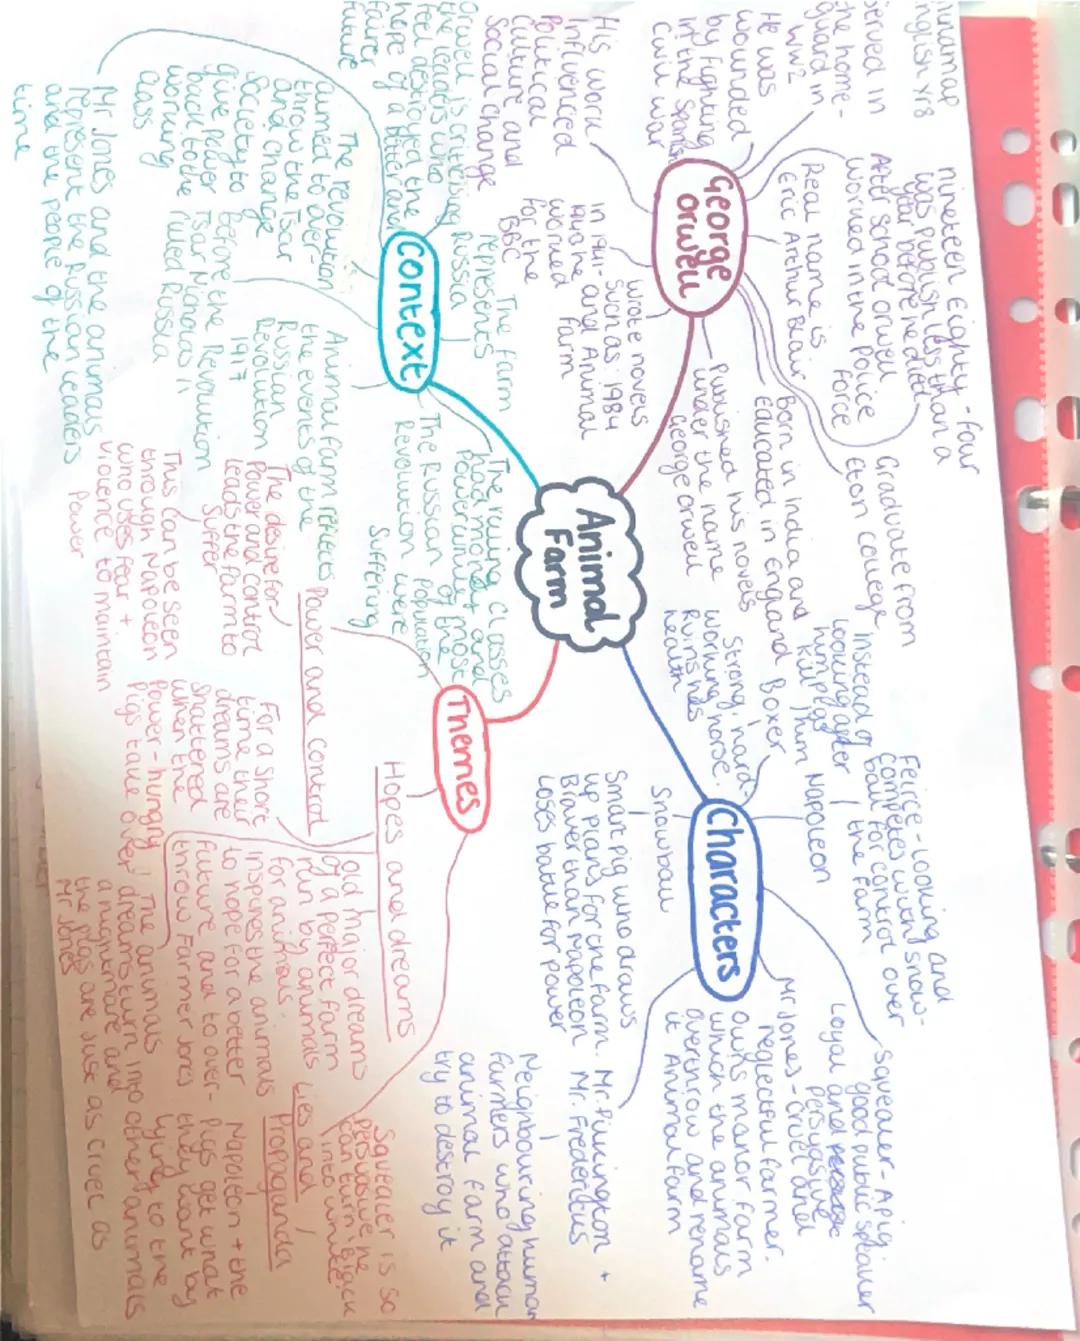 Animal
Farm
George
Orwell
served in
the home-
guard in
WW2
He was
wounded
by fighting
in the Spanish
Civil war
His work
influenced
Political
Culture and
Social change
nineteen Eighty-four
was publish less than a
year before he died
After school orwell
worked in the Police
force
Real name is
Eric Arthur Blair
In 1941-
1943 he
worked
for the
BBC
wrote novels
such as 1984
and Animal
Farm
Published his novels
under the name
George Orwell
born in India and
Educated in England
Graduate from
Eton college
Characters
Boxer
Strong, hard-
working horse.
Ruins his
health
Instead of
looking after
him, pigs
kill him
Napoleon
Feirce-looking and
competes with snow-
ball for control over
the farm
Squealer-A pig.
good public speaker
Loyal and
persuasive
Mr Jones-cruel and
neglectful farmer.
Owns manor farm
which the animals
overthrow and rename
it Animal farm
Snowball
Smart pig who draws
up plans for the farm.
Braver than Napoleon
Loses battle for power
Mr. Pilkington +
Mr. Fredericks
Neighbouring human
farmers who attack
animal farm and
try to destroy it
Context
Orwell is critising
the leaders who
feel destroyed the
hope of a fairer and
future
The farm
represents
Russia
The revolution
aimed to over-
throw the Tsar
and change
Society to
give power
back to the
working
class
Before the Revolution
Tsar Nicholas II
ruled Russia
Mr Jones and the animals
represent the Russian leaders
and the people of the
time
Animal farm reflects
the events of the
Russian
Revolution
1917
The ruling classes
had money and
power while most
of the
The Russian Population
Revolution were
Suffering
Themes
Power and control
The desire for
Power and control
leads the farm to
Suffer
This can be seen
through Napoleon
who uses fear +
violence to maintain
Power
Hopes and dreams
Old major dreams
of a perfect farm
run by animals
for animals.
Inspires the animals
to hope for a better
future and to over-
throw Farmer Jones
For a short
time their
dreams are
shattered
when the
Power-hungry
Pigs take over
The animals
dreams turn into
a nightmare and
the pigs are just as cruel as
Mr Jones
Lies and
Propaganda
Squealer is so
persuasive he
can turn "black
into white"
Napoleon + the
Pigs get what
they want by
lying to the
other animals